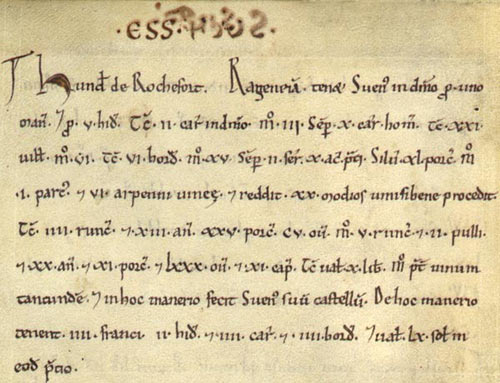 ·ESS·
Hund̄ de Rochefort. Rageneiā tenꝫ Suen̄ in dn̄io ꝓ uno
man̄. ⁊ ꝓ v. hid̄. Tc̄ .ii. car̄ in dn̄io. m̊ .iii. Sēp .x. car̄ hom̄. Tc̄ .xxi.
uilt̄. m̊ .vi. Tc̄ .vi. bord̄. m̊ .xv. Sēp .ii. ser̄. x. ac̄. p̄ti. Silu̅ .xl. porc̄. m̊
.i. parc̄. ⁊ vi. arpenni uineę. ⁊ reddit .xx. modios uini si bene procedit.
Tc̄ .iiii. runc̄. ⁊ xiii. an̄. xxv. porc̄. cv. ou̅. m̊ .v. runc̄. ⁊ .ii. pulli.
⁊ xx. an̄. ⁊ xi. porc̄. ⁊ lxxx. ou̅. ⁊ xi. cap̄. Tc̄ ual̄ .x. lib̄. m̊ p̄t uinum
tantunde. ⁊ in hoc manerio fecit Suen̄ suū castellū. De hoc manerio
tenent .iiii. franci .ii. hid̄. ⁊ iiii. car̄. ⁊ .iiii. bord̄. ⁊ ual̄. lx. sol̄ in
eod̄ p̄tio.